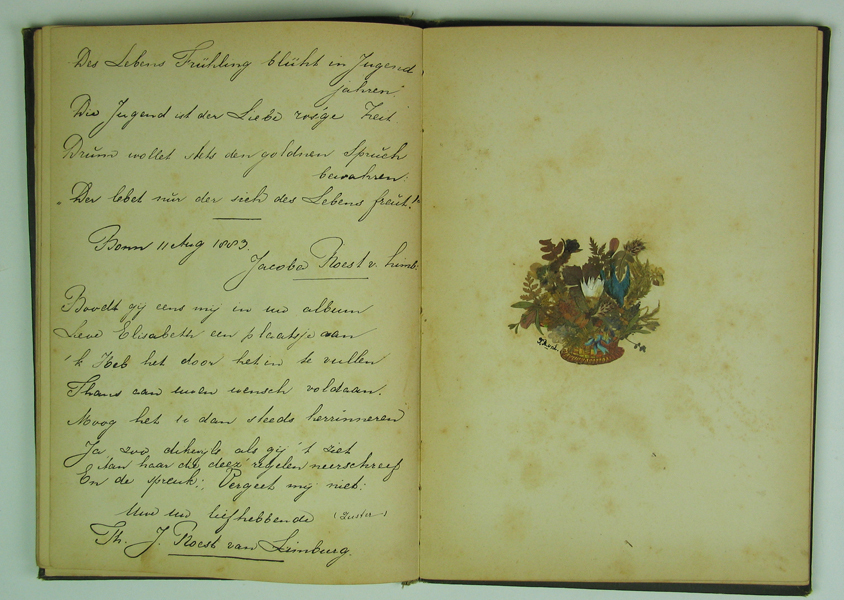 Des Lebens Frühling blüht in Jugend
jahren.
Die Jugend ist der Liebe ros'ge Zeit
Drum wollet stets den goldnen Spruch
bewahren:
„Der lebet nur der sich des Lebens freut."
Bonn 11 Aug 1883.
Jacoba Roest v. Limb.
Boodt gij eens mij in uw album
Lieve Elisabeth een plaatsje aan
'k Heb het door het in te vullen
Thans aan uwen wensch voldaan.
Moog het u dan steeds herrinneren
Ja zoo dikwijls als gij 't ziet
Aan haar die deez' regelen neerschreef
En de spreuk: Vergeet mij niet:
Uwe uw liefhebbende (Zuster)
Th. J. Roest van Limburg.